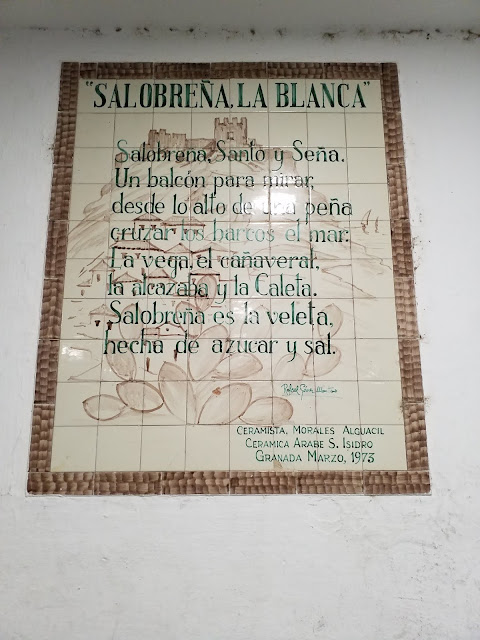 "SALOBREÑA, LA BLANCA"
Salobreña, Santo y Seña.
Un balcón para mirar,
desde lo alto de una peña
cruzar los barcos el mar.
La vega, el cañaveral,
la alcazaba y la Caleta.
Salobreña es la veleta,
hecha de azucar y sal.
CERAMISTA, MORALES ALGUACIL
CERAMICA ARABE S. ISIDRO
GRANADA MARZO, 1973